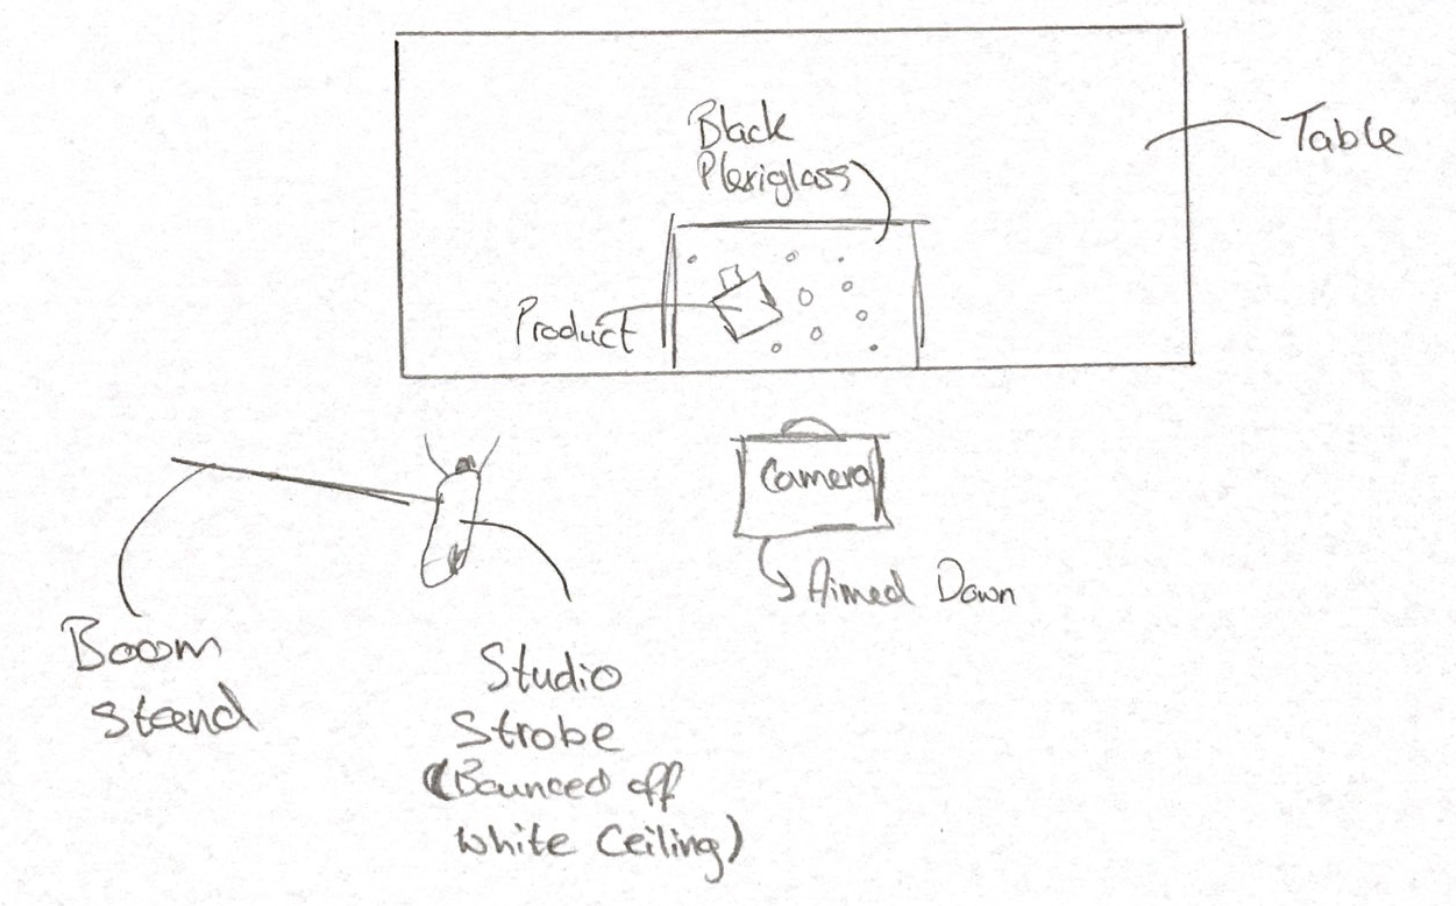 Black
Plexiglass
Table
Product
Camera
Aimed Down
Boom
Stand
Studio
Strobe
(Bounced off
White Ceiling)